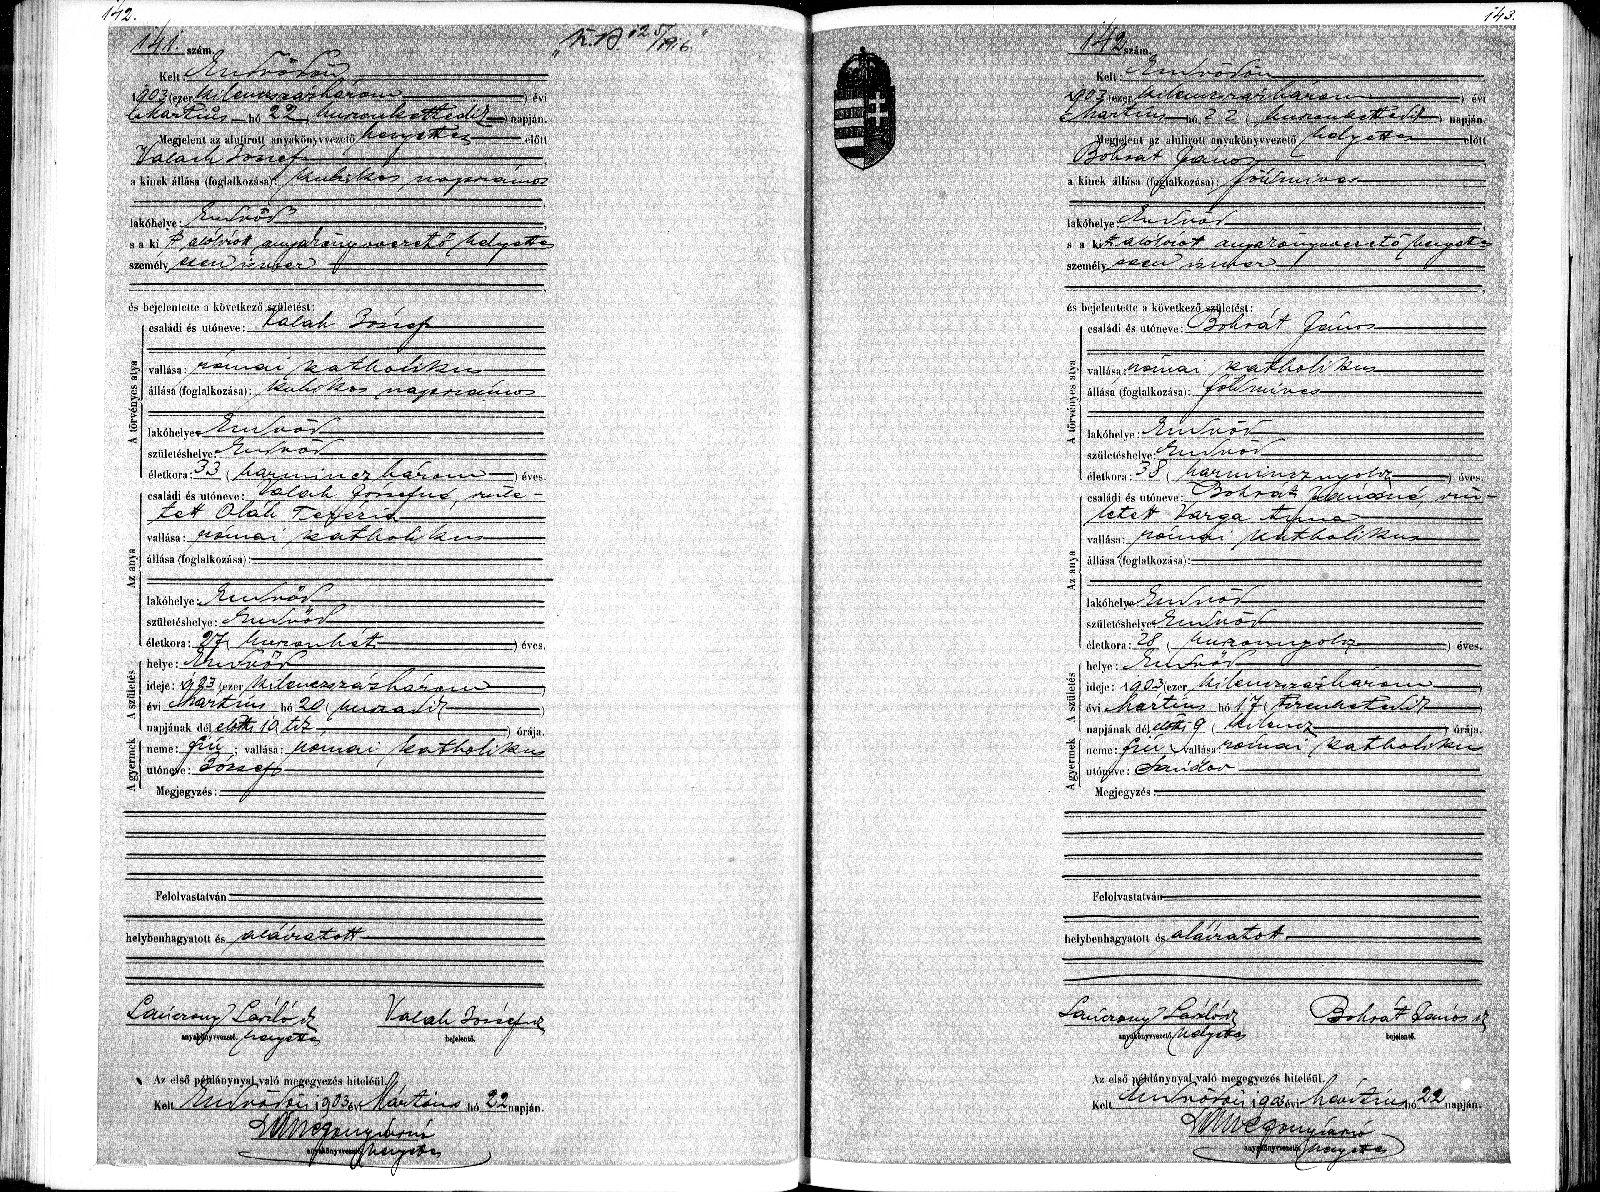 142.
141. szám.
Kelt Endrődön
1903 (ezer kilenczszázhárom ) évi
Martius hó 22 ( huszonkettedik ) napján.
Megjelent az alulirott anyakönyvvezető helyettes előtt
Valach József
a kinek állása (foglalkozása): kubikos napszámos
lakóhelye: Endrőd
s a ki t alólirott anyakönyvvezető helyettes
személyesen ismer
és bejelentette a következő születést:
A törvényes atya
családi és utóneve: Valah József
vallása: római katholikus
állása (foglalkozása): kubikos napszámos
lakóhelye: Endrőd
születéshelye: Endrőd
életkora: 33 ( harminczhárom ) éves.
Az anya
családi és utóneve: Valah Józsefné, szüle-
tett Oláh Terézia
vallása: római katholikus
állása (foglalkozása):
lakóhelye: Endrőd
születéshelye: Endrőd
életkora: 27 ( huszonhét ) éves.
A születés
helye: Endrőd
ideje: 1903 (ezer kilenczszázhárom )
évi Martius hó 20 ( huszadik )
napjának dél előtti 10 tiz ) órája.
A gyermek
neme: fiú ; vallása: római katholikus
utóneve: József
Megjegyzés:
Felolvastatván
helybenhagyatott és aláiratott
László Valah József
anyakönyvvezető. helyettes bejelentő.
Az első példánynyal való megegyezés hiteléül.
Kelt Endrődön 1903 évi Mártius hó 22 napján.
anyakönyvvezető helyettes
143.
142 szám.
Kelt: Endrődön
1903 (ezer kilenczszázhárom ) évi
Mártius hó 22 ( huszonkettedik ) napján.
Megjelent az alulirott anyakönyvvezető helyettes előtt
Bohrát János
a kinek állása (foglalkozása): földmives
lakóhelye: Endrőd
s a kit alólirót anyakönyvvezető helyettes
személyesen ismer
és bejelentette a következő születést:
A törvényes atya
családi és utóneve: Bohrát János
vallása: római katholikus
állása (foglalkozása): földmives
lakóhelye: Endrőd
születéshelye: Endrőd
életkora: 38 ( harmincznyolcz ) éves.
Az anya
családi és utóneve: Bohrát Jánosné, szü-
letett Varga Anna
vallása: római katholikus
állása (foglalkozása):
lakóhelye: Endrőd
születéshelye: Endrőd
életkora: 28 ( huszonnyolcz ) éves.
A születés
helye: Endrőd
ideje: 1903 (ezer kilenczszázhárom )
évi Mártius hó 17 ( tizenhetedik )
napjának dél előtti 9 ( kilencz ) órája.
A gyermek
neme: fiú ; vallása: római katholikus
utóneve: Sándor
Megjegyzés:
Felolvastatván
helybenhagyatott és aláiratott.
László Bohrát János
anyakönyvvezető. helyettes bejelentő.
Az első példánynyal való megegyezés hiteléül.
Kelt Endrődön 1903 évi Mártius hó 22 napján.
anyakönyvvezető helyettes